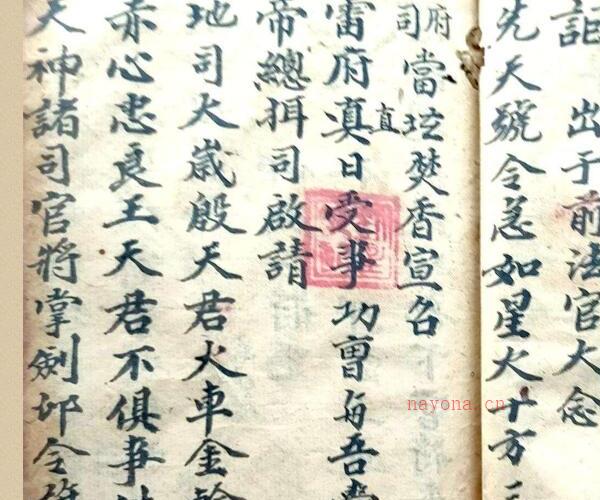 詎　出于前法官大念
先天號令急如星火十方
府司當坛焚香宣名
雷府真日直受事功曹與吾
帝總拜司啟請
地司大歲殷天君火車金輪
赤心忠良王天君不俱事
天神諸司官將掌劍卬令
nayona.cn